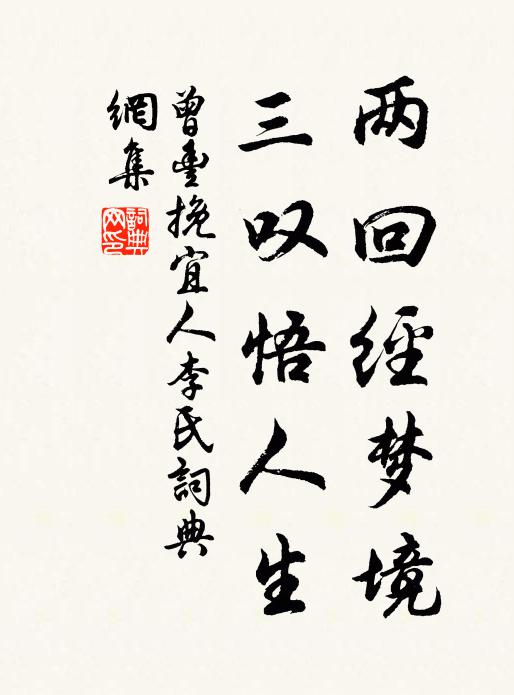 两回經梦境
三叹悟人生
曾豊挽宜人李氏詞典
網集
詞典
网印